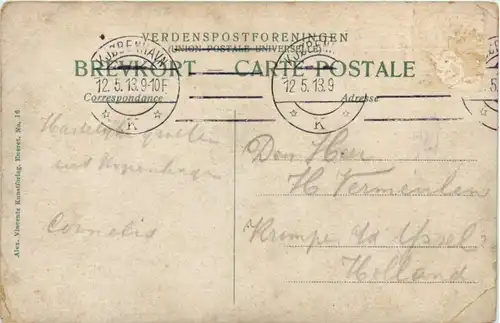 VERDENSPOSTFORENINGEN
(UNION POSTALE UNIVERSELLE)
BREVKORT – CARTE POSTALE
KJØBENHAVN
12.5.13.9-10F
K
KJØBENH
12.5.13.9
K
Correspondance
Adresse
Hartelijke groeten
uit Kopenhagen
Cornelis
Den Heer
H Vermeulen
Krimpen a/d Yssel
Holland
Alex. Vincents Kunstforlag. Eneret. No. 14